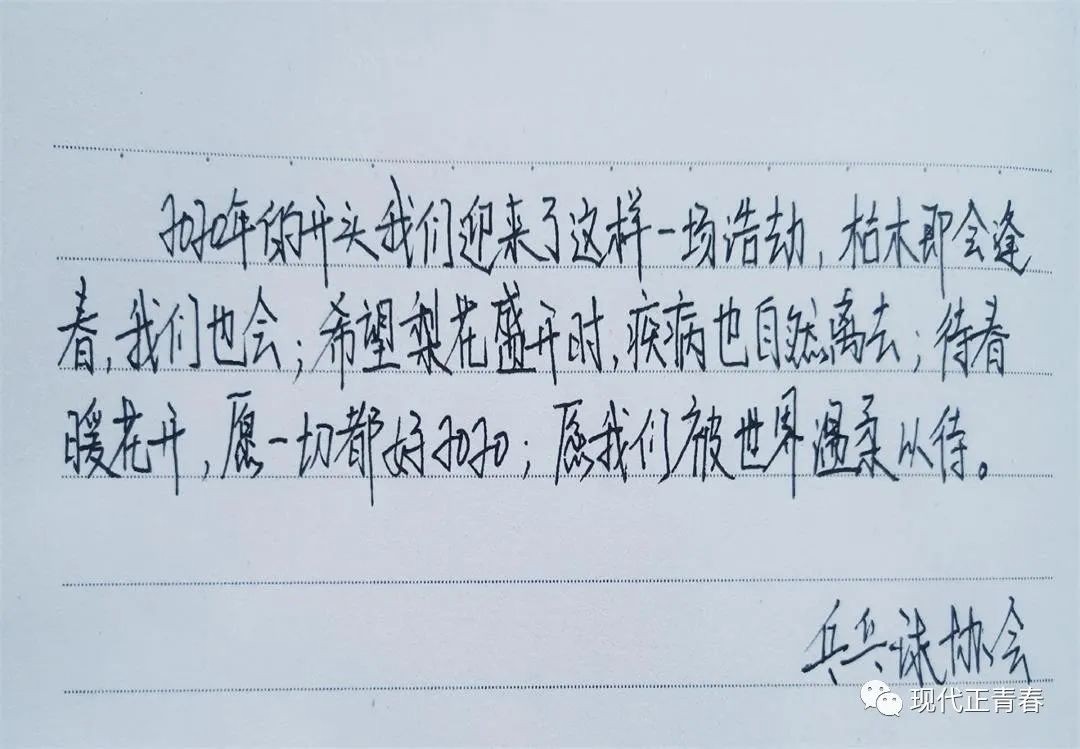 2020年的开头我们迎来了这样一场浩劫，枯木即会逢
春，我们也会；希望梨花盛开时，疾病也自然离去；待春
暖花开，愿一切都好2020；愿我们被世界温柔以待。
兵兵球协会
现代正青春